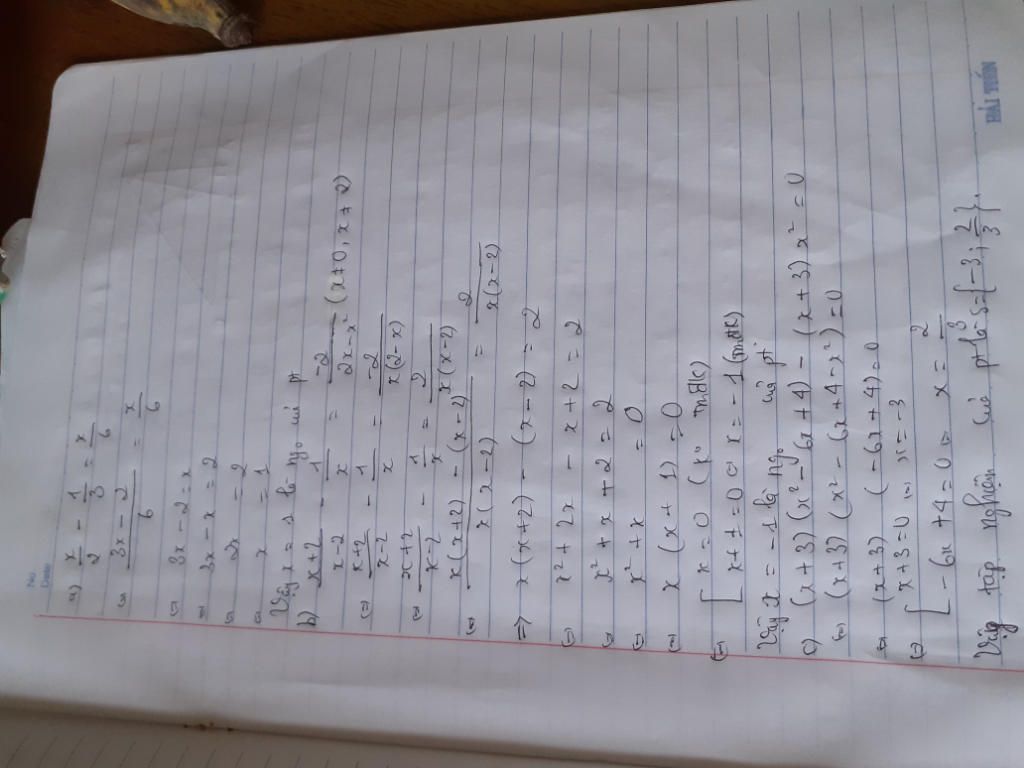 No
Date
a) x/2 - 1/3 = x/6
(=) (3x - 2)/6 = x/6
(=) 3x - 2 = x
(=) 3x - x = 2
(=) 2x = 2
(=) x = 1
Vậy x = 1 là ng₀ của pt
b) (x+2)/(x-2) - 1/x = -2/(2x-x²) (x≠0, x≠2)
(=) (x+2)/(x-2) - 1/x = -2/(x(2-x))
(=) (x+2)/(x-2) - 1/x = 2/(x(x-2))
(=) (x(x+2) - (x-2))/(x(x-2)) = 2/(x(x-2))
=> x(x+2) - (x-2) = 2
(=) x² + 2x - x + 2 = 2
(=) x² + x + 2 = 2
(=) x² + x = 0
(=) x (x + 1) = 0
(=) [ x = 0 (ko tmđk)
x + 1 = 0 (=) x = -1 (tmđk)
Vậy x = -1 là ng₀ của pt
c) (x+3)(x² - 6x + 4) - (x+3)x² = 0
(=) (x+3)(x² - 6x + 4 - x²) = 0
(=) (x+3) (-6x + 4) = 0
(=) [ x+3 = 0 (=) x = -3
-6x + 4 = 0 (=) x = 2/3
Vậy tập nghiệm của pt là S = { -3; 2/3 }.
HẢI TIẾN